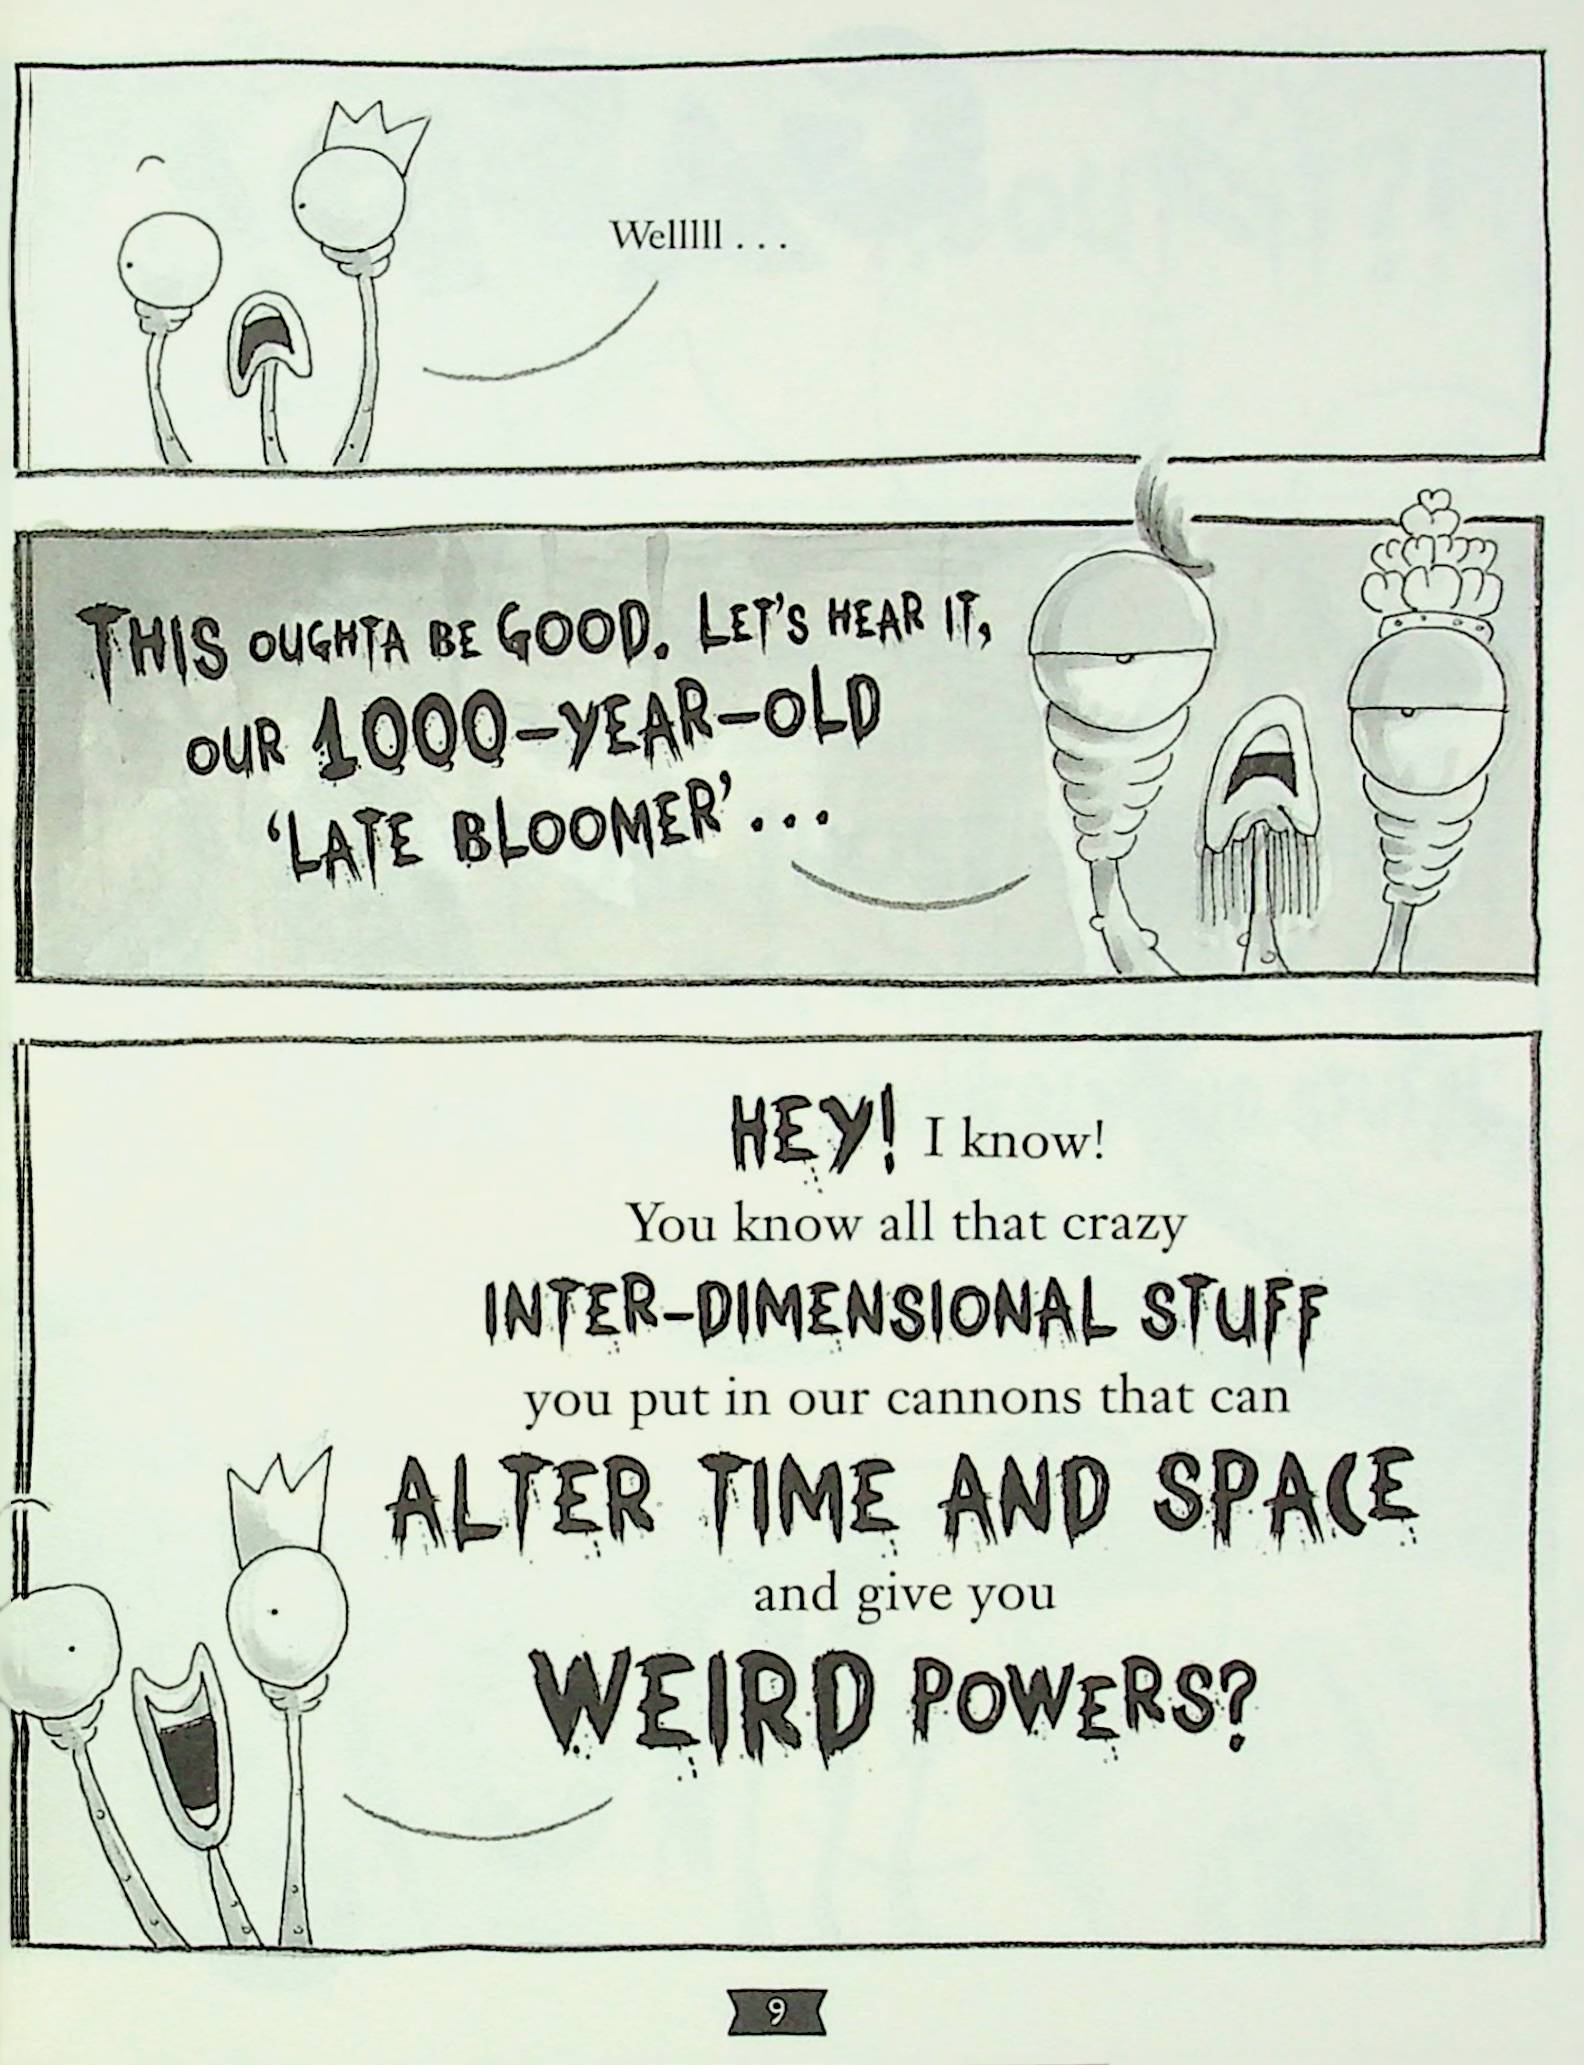 Welllll . . .
THIS OUGHTA BE GOOD. LET'S HEAR IT,
OUR 1000-YEAR-OLD
'LATE BLOOMER'...
HEY! I know!
You know all that crazy
INTER-DIMENSIONAL STUFF
you put in our cannons that can
ALTER TIME AND SPACE
and give you
WEIRD POWERS?
9